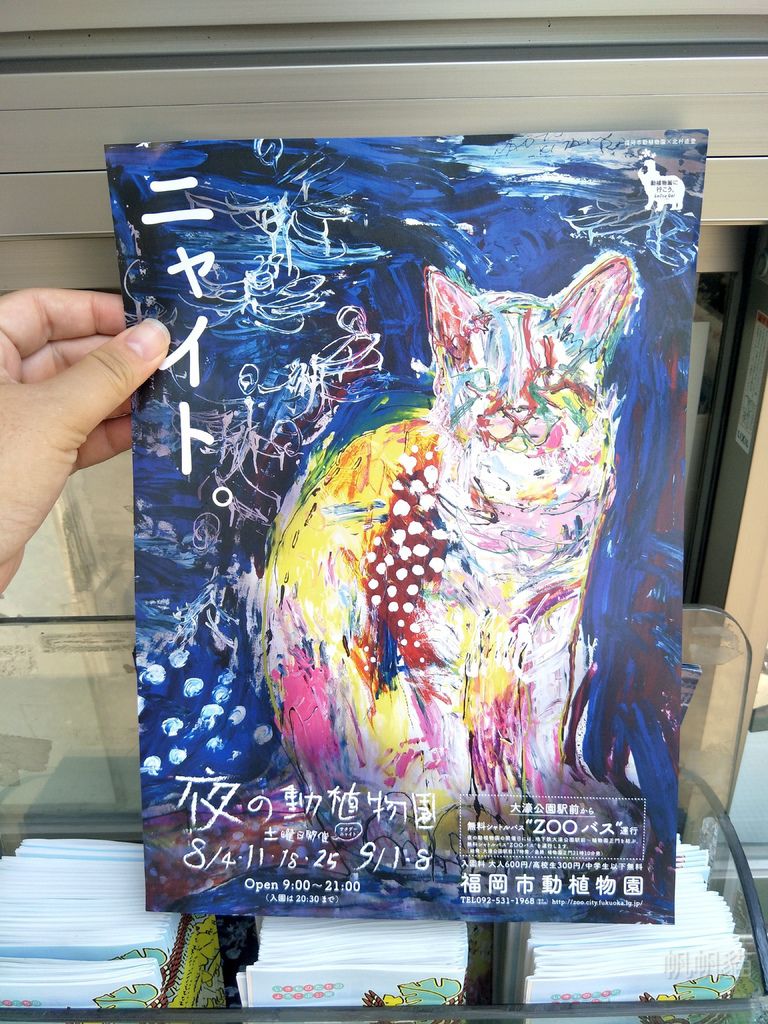 福岡市動植物園×北村直登
動植物園に
行こう。
ニャイト。
夜の動植物園
土曜日開催
8/4・11・18・25 9/1・8
Open 9:00〜21:00
(入園は20:30まで)
大濠公園駅前から
無料シャトルバス"ZOOバス"運行
入園料 大人600円/高校生300円/中学生以下無料
福岡市動植物園
TEL092-531-1968 http://zoo.city.fukuoka.lg.jp/
帆帆貓